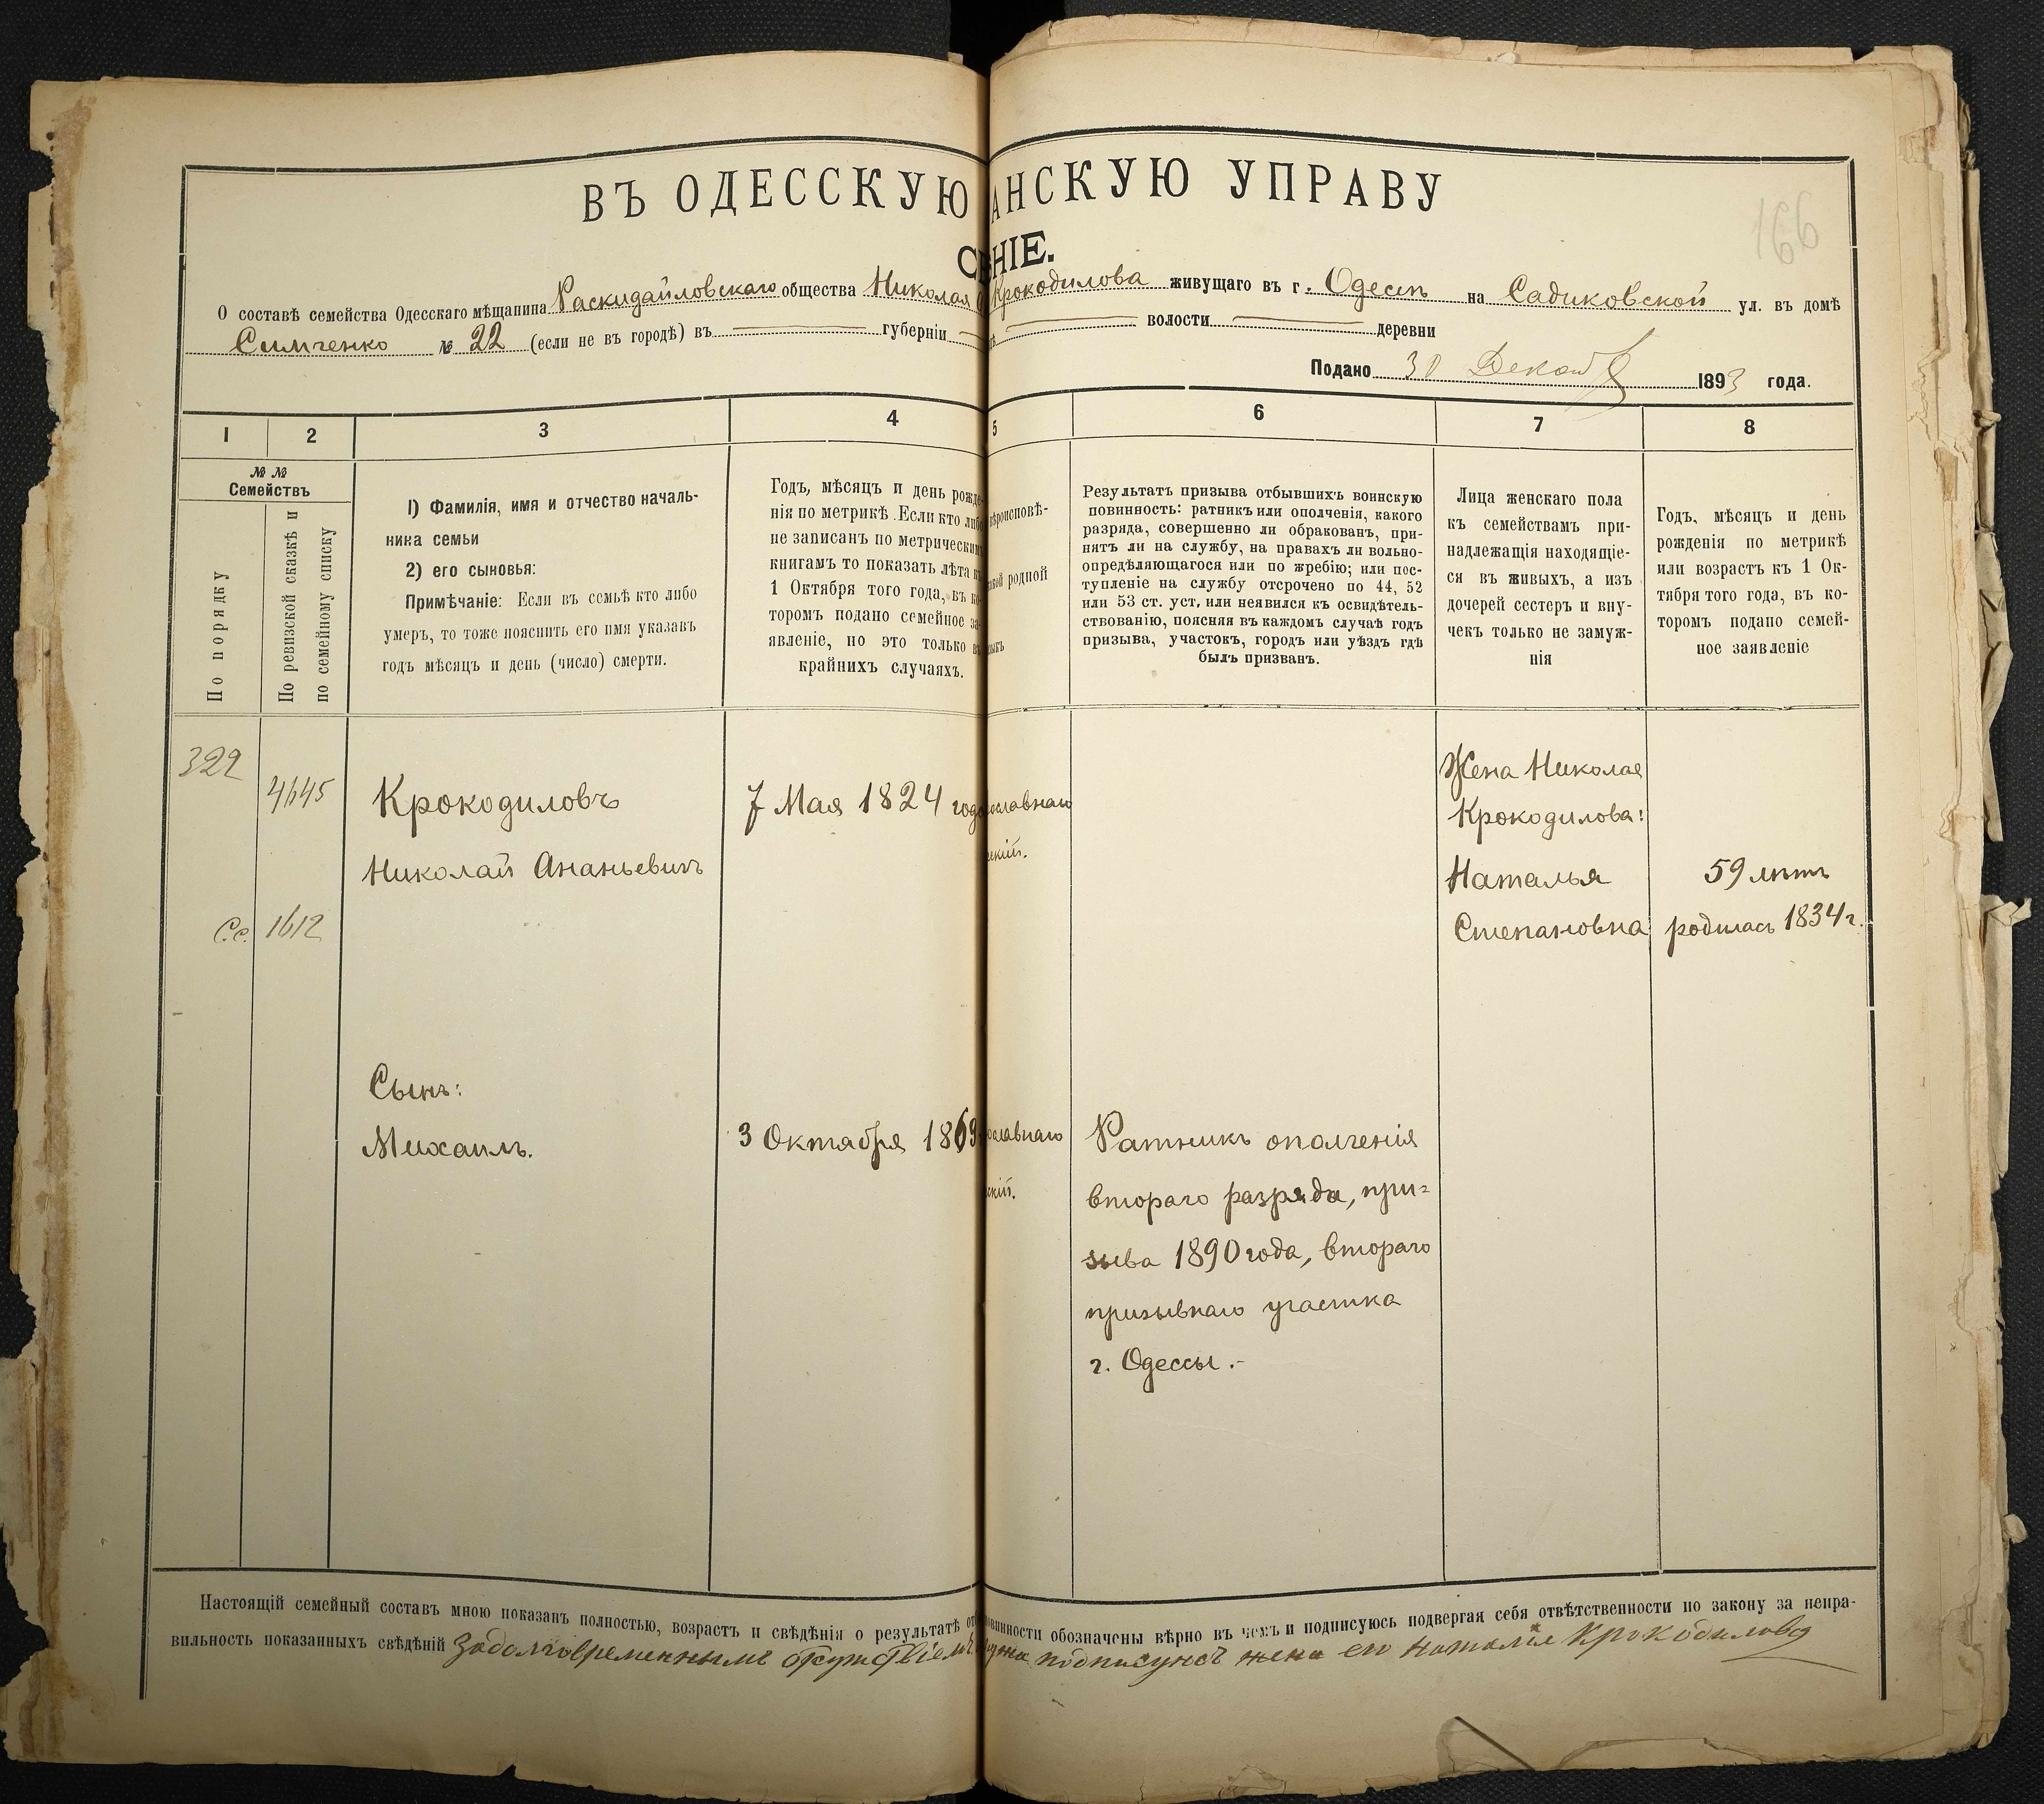 ВЪ ОДЕССКУЮ АНСКУЮ УПРАВУ
166
НІЕ.
О составѣ семейства Одесскаго мѣщанина Раскидайловскаго общества Николая Крокодилова живущаго въ г. Одессѣ на Садиковской ул. въ домѣ
Симченко № 22 (если не въ городѣ) въ губерніи волости деревни
Подано 30 Декаб 1893 года.
1 2 3 4 5 6 7 8
№ №
Семействъ
По порядку
По ревизской сказкѣ и
по семейному списку
1) Фамилія, имя и отчество началь-
ника семьи
2) его сыновья:
Примѣчаніе: Если въ семьѣ кто либо
умеръ, то тоже пояснить его имя указавъ
годъ мѣсяцъ и день (число) смерти.
Годъ, мѣсяцъ и день рожде-
нія по метрикѣ. Если кто либо
не записанъ по метрическим
книгамъ то показать лѣта к
1 Октября того года, въ ко
торомъ подано семейное за-
явленіе, но это только в
крайнихъ случаяхъ.
ѣроисповѣ-
родной
ыкъ
Результатъ призыва отбывшихъ воинскую
повинность: ратникъ или ополченія, какого
разряда, совершенно ли обракованъ, при-
нятъ ли на службу, на правахъ ли вольно-
опредѣляющагося или по жребію; или пос-
тупленіе на службу отсрочено по 44, 52
или 53 ст. уст, или неявился къ освидѣтель-
ствованію, поясняя въ каждомъ случаѣ годъ
призыва, участокъ, городъ или уѣздъ гдѣ
былъ призванъ.
Лица женскаго пола
къ семействамъ при-
надлежащія находящіе-
ся въ живыхъ, а изъ
дочерей сестеръ и вну-
чекъ только не замуж-
нія
Годъ, мѣсяцъ и день
рожденія по метрикѣ
или возрастъ къ 1 Ок-
тября того года, въ ко-
торомъ подано семей-
ное заявленіе
322
4645
Крокодиловъ
Николай Ананьевичъ
С.с. 1612
7 Мая 1824 года
ославнаго
скій.
Жена Николая
Крокодилова:
Наталья
Степановна
59 лѣтъ
родилась 1834 г.
Сынъ:
Михаилъ.
3 Октября 1869
ославнаго
скій.
Ратникъ ополченія
втораго разряда, при=
зыва 1890 года, втораго
призывнаго участка
г. Одессы.-
Настоящій семейный составъ мною показанъ полностью, возрастъ и свѣдѣнія о результатѣ от овинности обозначены вѣрно въ чемъ и подписуюсь подвергая себя отвѣтственности по закону за непра-
вильность показанныхъ свѣдѣній Задолговременнымъ отсутствіемъ мужа подписуюсь жена его Наталія Крокодилова